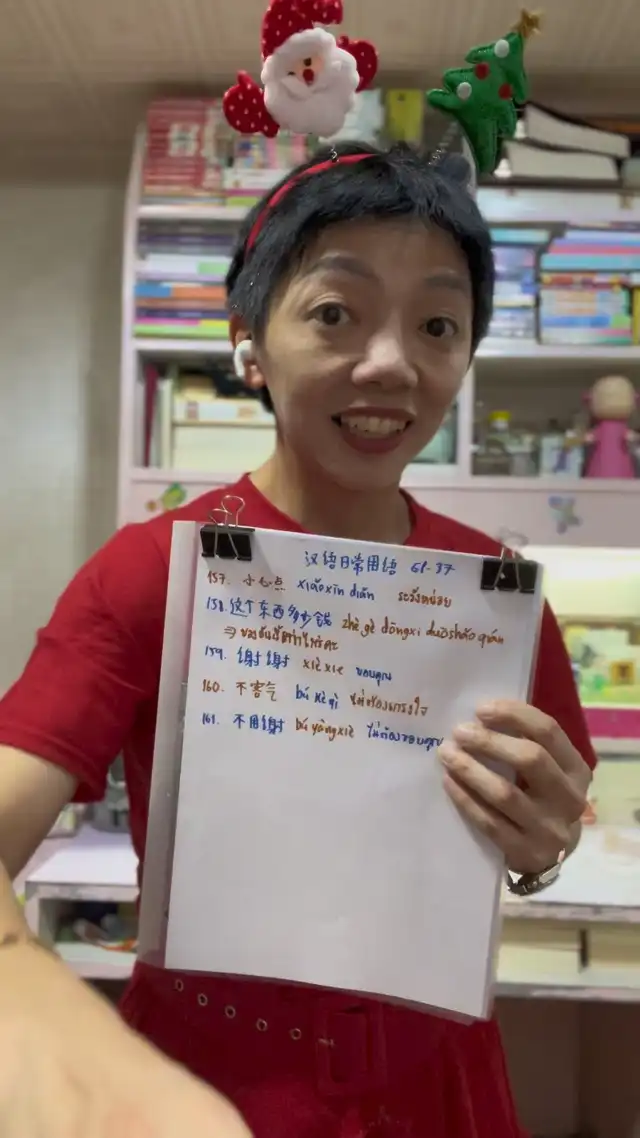 汉语日常用语 EP.37
157. 小心点 xiǎoxīn diǎn ระวังหน่อย
158. 这个东西多少钱 zhè gè dōngxi duōshǎo qián
⇒ ของอันนี้เท่าไหร่คะ
159. 谢谢 xiè xie ขอบคุณ
160. 不客气 bú kè qì ไม่ต้องเกรงใจ
161. 不用谢 bú yòng xiè ไม่ต้องขอบคุณ